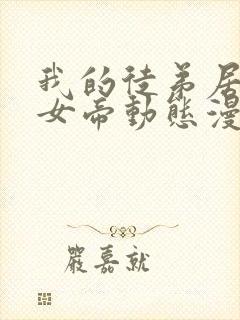 我的徒弟居
女帝動態漫
嚴嘉就